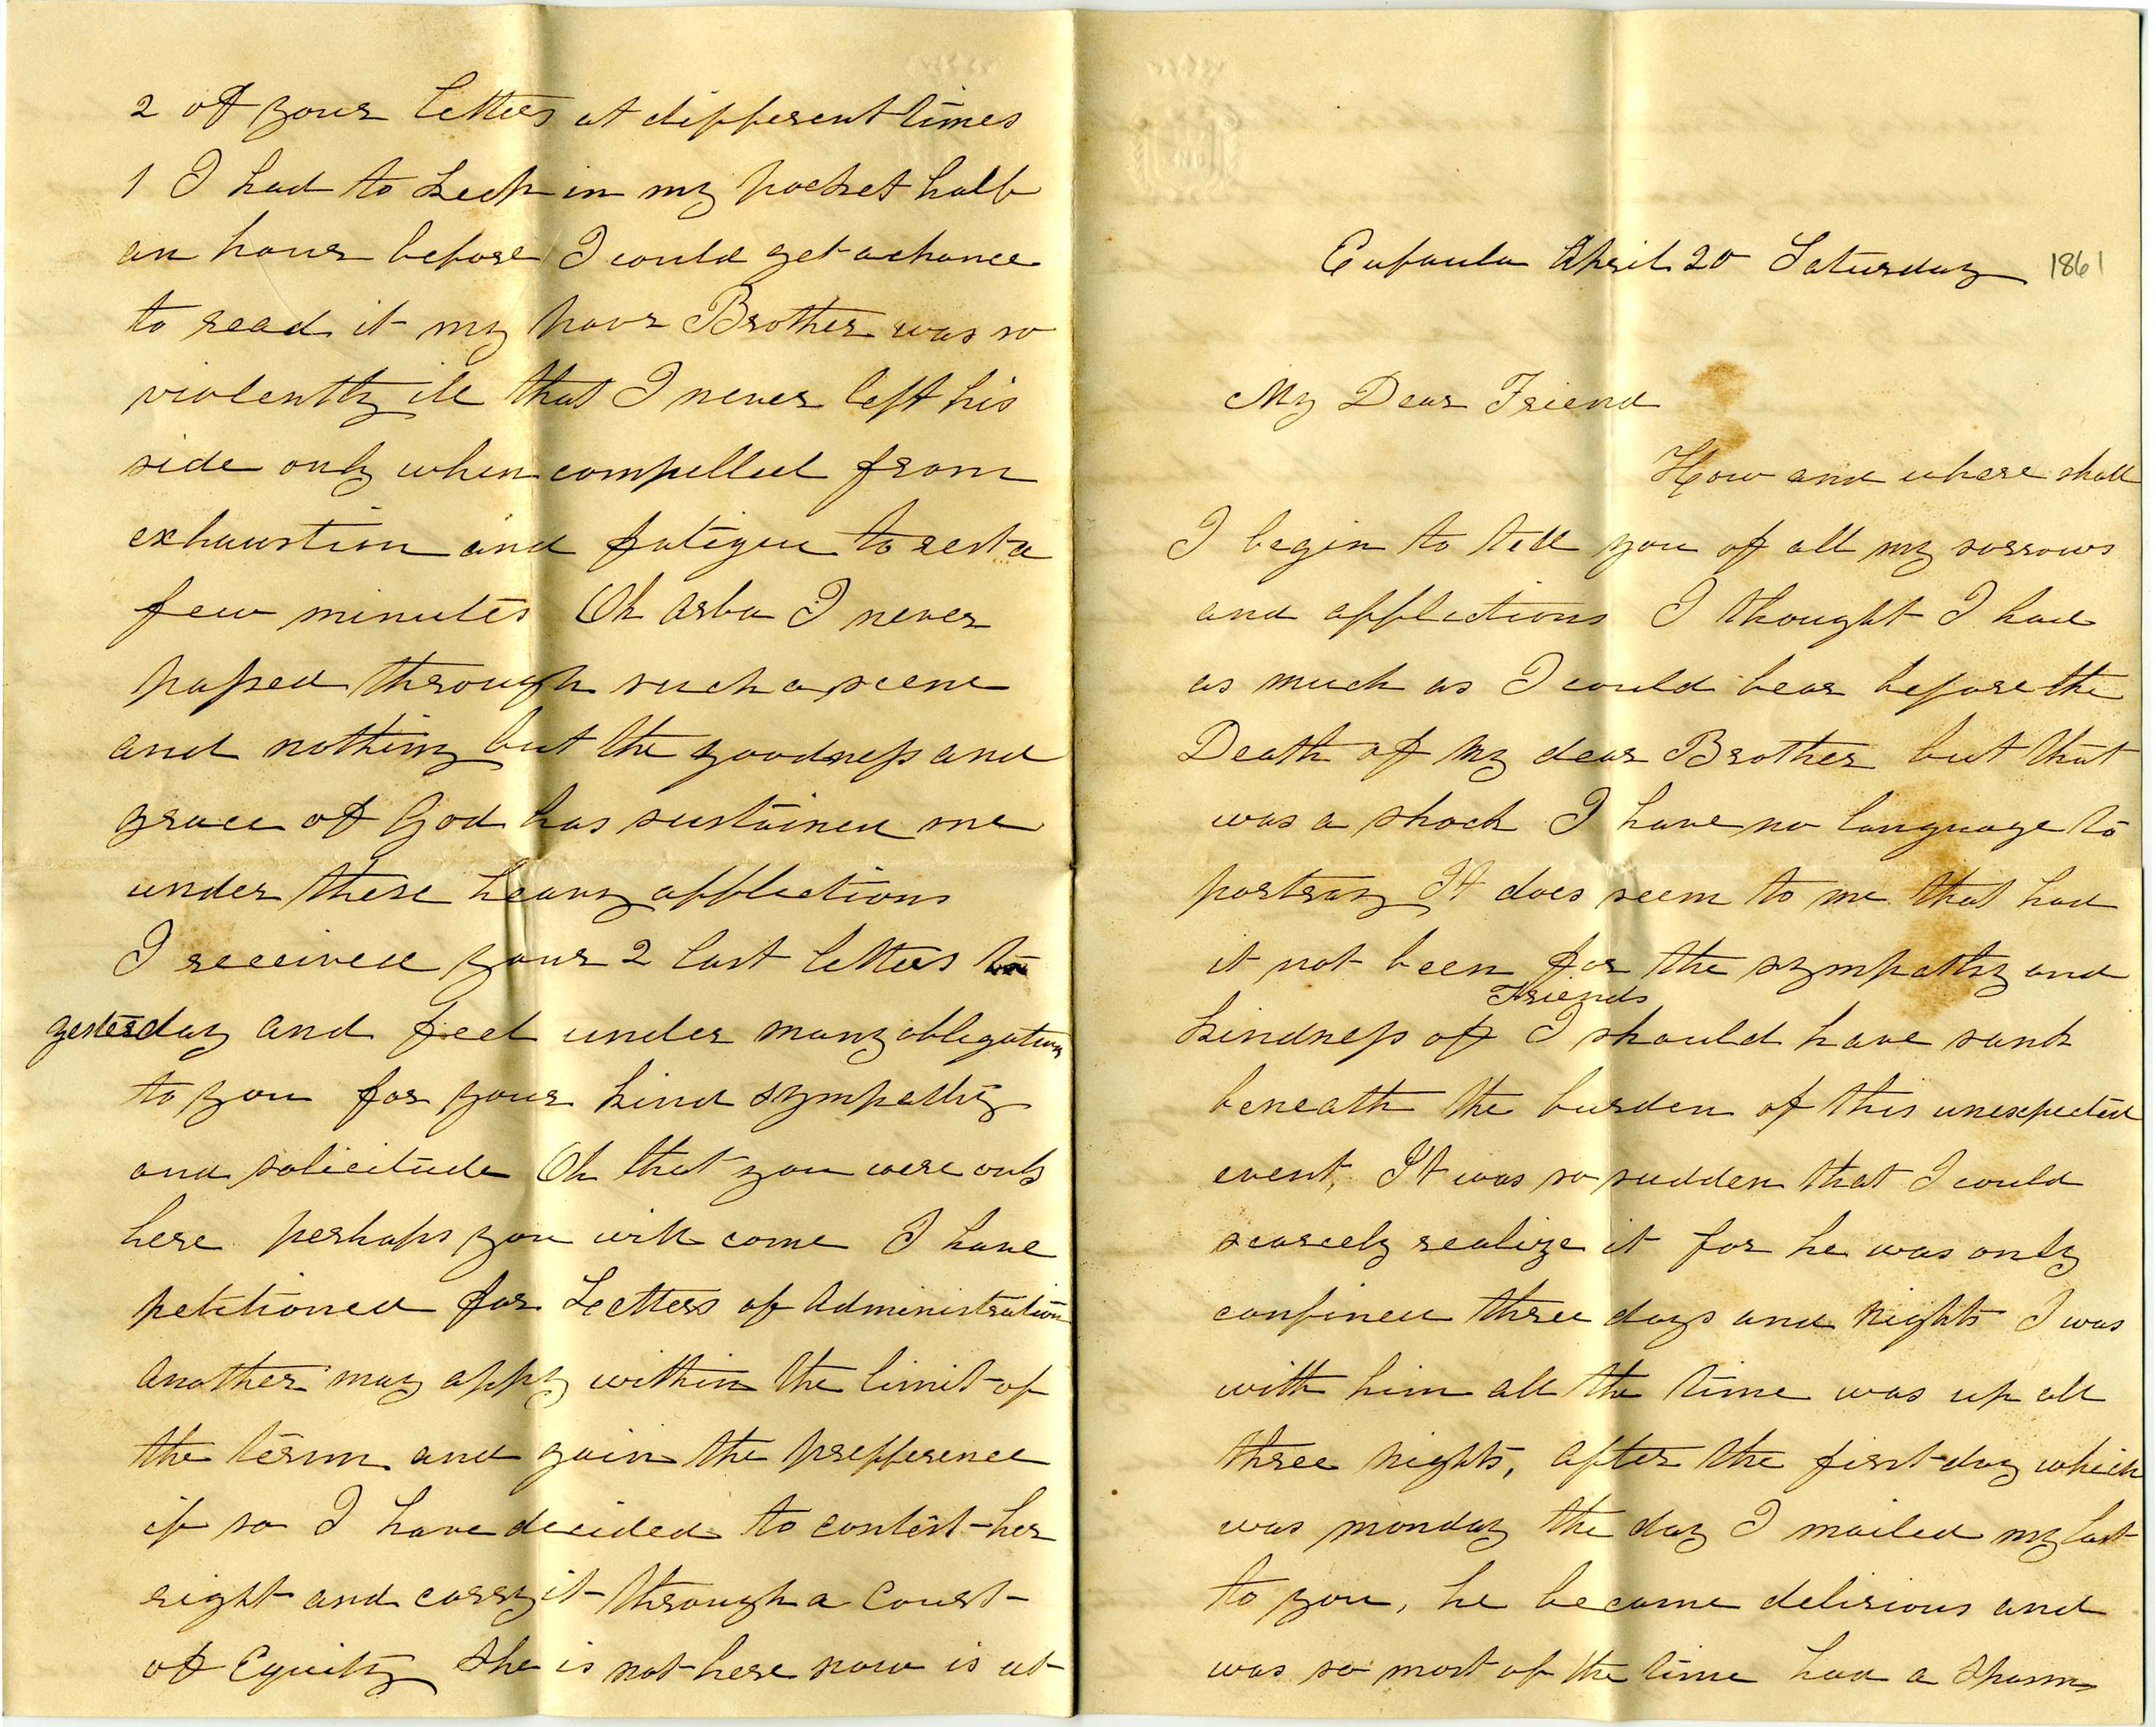 Eufaula April 20 Saturday 1861
My Dear Friend
How and where shall
I begin to tell you of all my sorrows
and afflictions I thought I had
as much as I could bear before the
Death of my dear Brother but that
was a shock I have no language to
portray It does seem to me that had
it not been for the sympathy and
Friends
kindness of I should have sunk
beneath the burden of this unexpected
event, It was so sudden that I could
scarcely realize it for he was only
confined three days and nights I was
with him all the time was up all
three nights, after the first day which
was monday the day I mailed my last
to you, he became delirious and
was so most of the time had a spasm
2 of your letters at different times
1 I had to keep in my pocket half
an hour before I could get a chance
to read it my poor Brother was so
violently ill that I never left his
side only when compelled from
exhaustion and fatigue to rest a
few minutes Oh Arba I never
passed through such a scene
and nothing but the goodness and
grace of God has sustained me
under these heavy afflictions
I received your 2 last letters
yesterday and feel under many obligations
to you for your kind sympathy
and solicitude Oh that you were only
here perhaps you will come I have
petitioned for Letters of Administration
another may apply within the limit of
the term and gain the prefference
if so I have decided to contest her
right and carry it through a Court
of Equity She is not here now is at